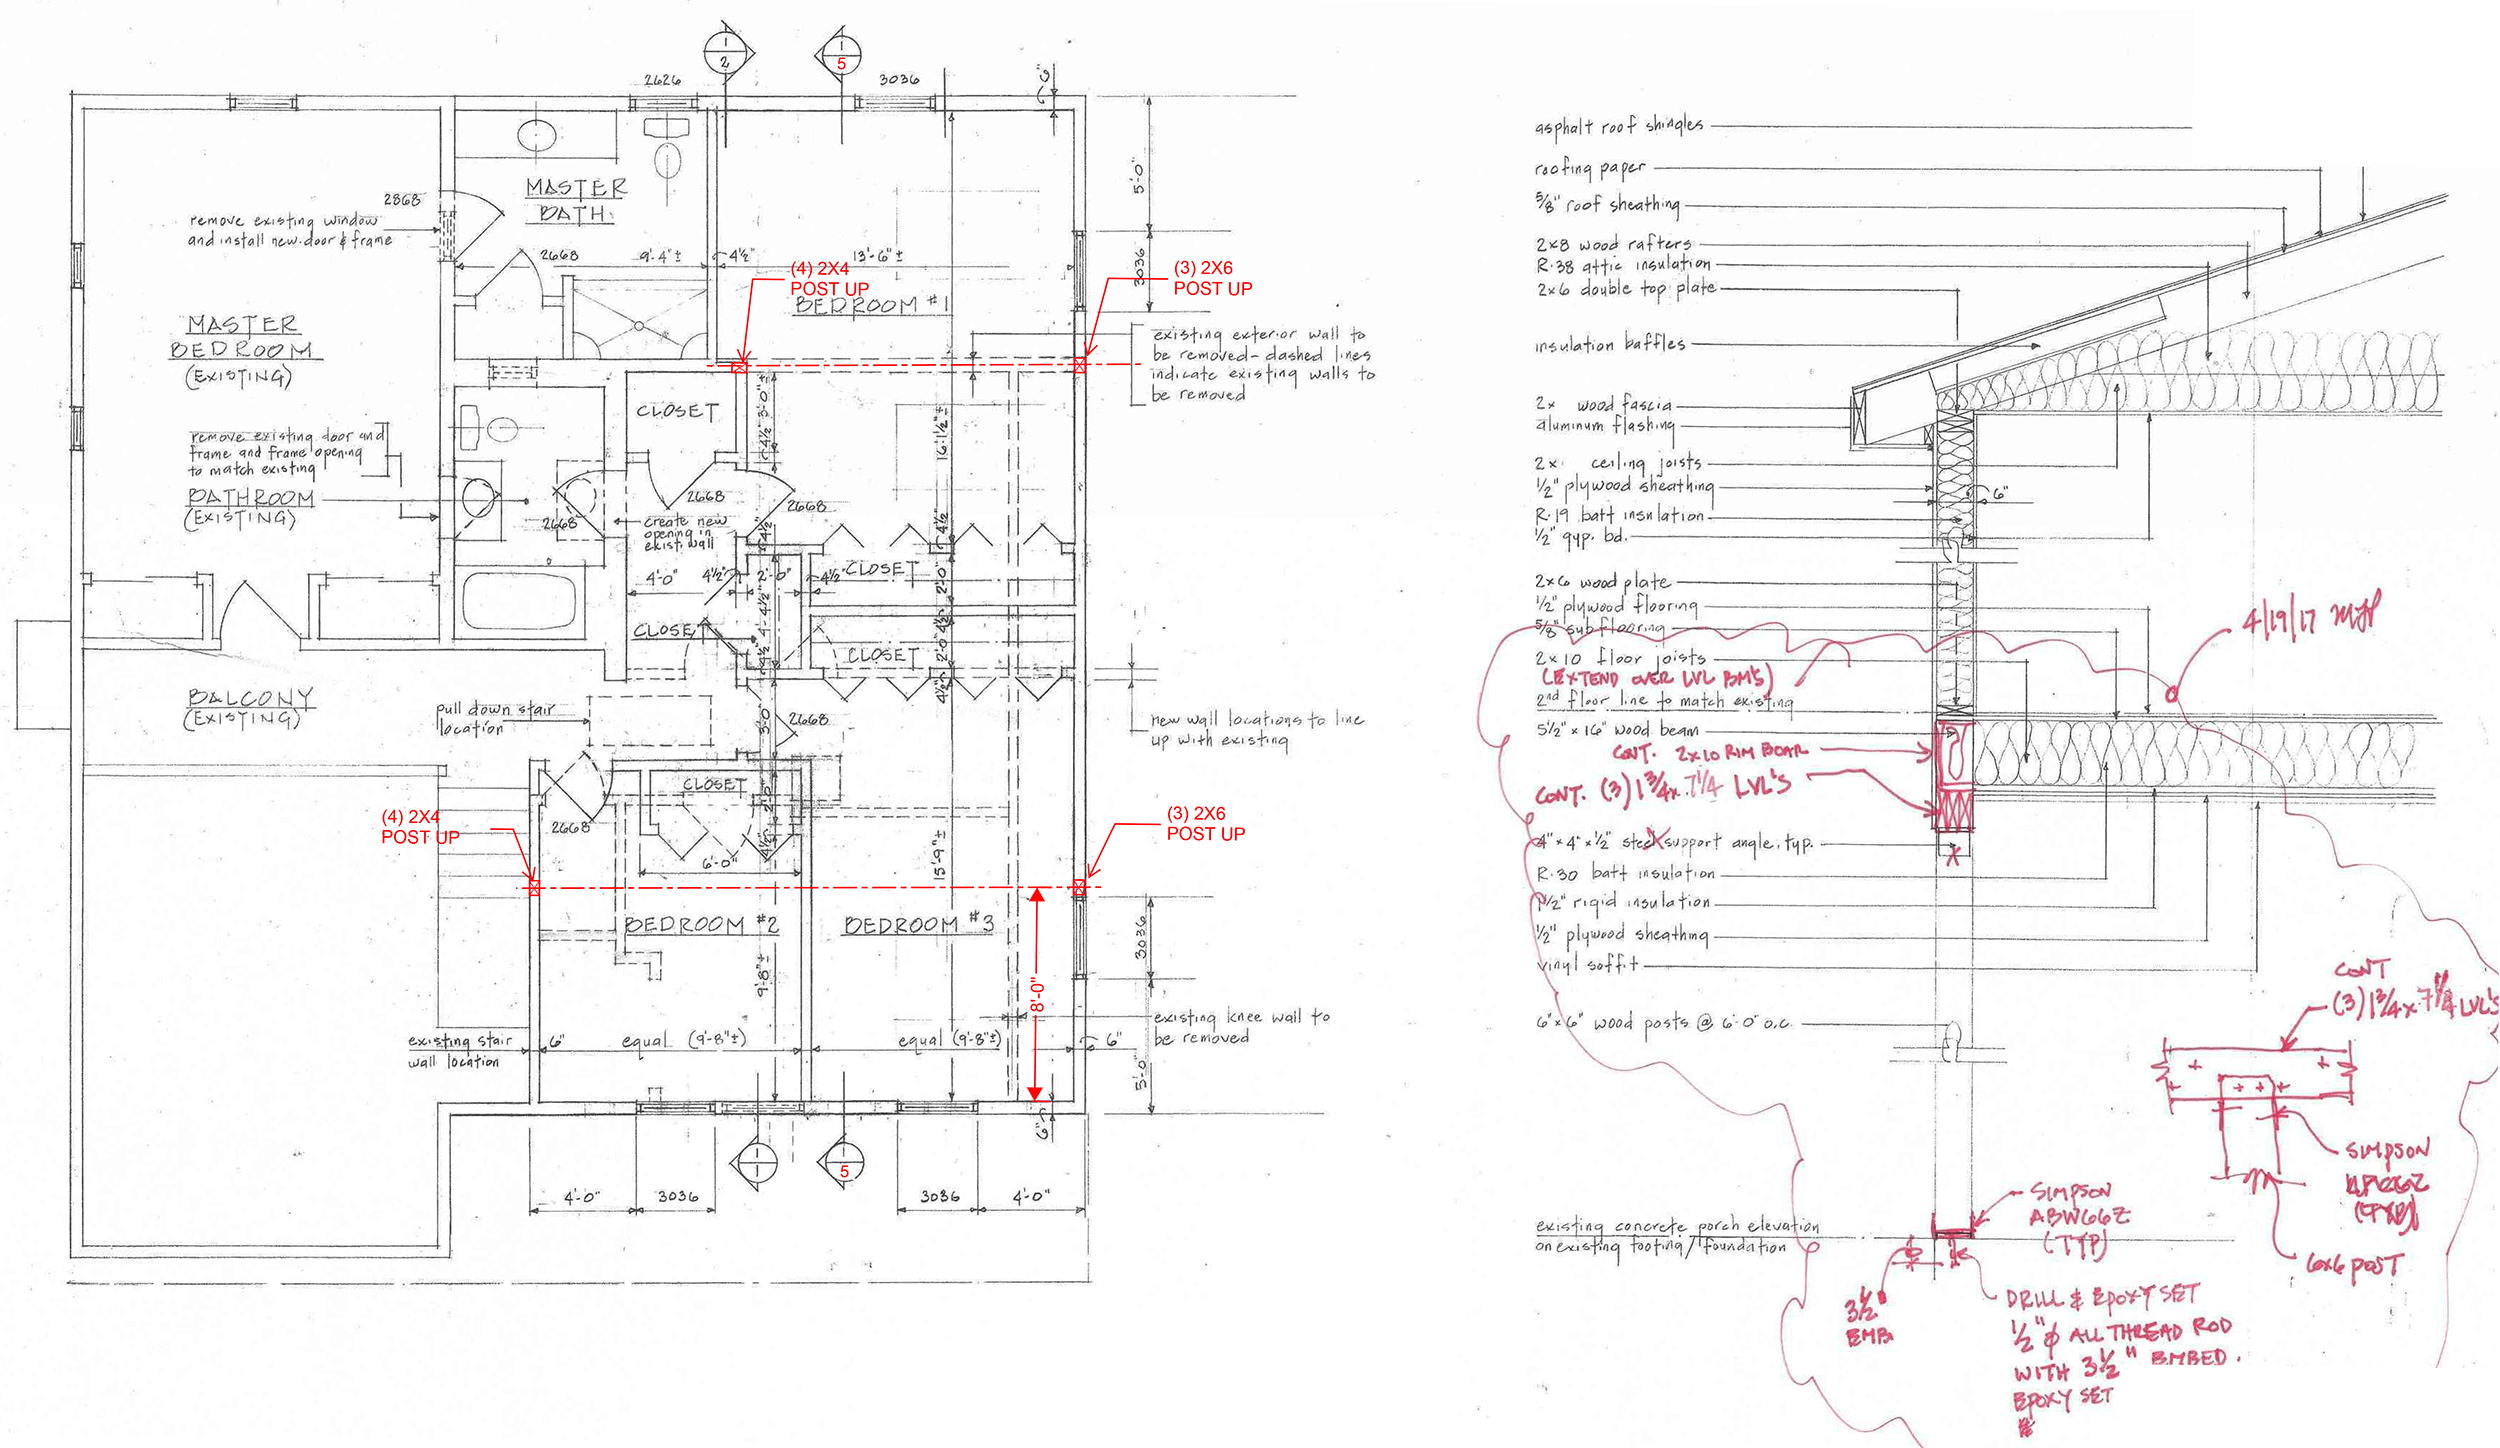 2
5
2626
3036
6"
5'-0"
3036
MASTER
BATH
2868
remove existing window
and install new door & frame
2668
9'-4"±
4½"
13'-6"±
(4) 2X4
POST UP
(3) 2X6
POST UP
BEDROOM #1
MASTER
BEDROOM
(EXISTING)
existing exterior wall to
be removed - dashed lines
indicate existing walls to
be removed
CLOSET
3'-0"
4½"
16'-1½"±
remove existing door and
frame and frame opening
to match existing
BATHROOM
(EXISTING)
2668
2668
2668
create new
opening in
exist. wall
4½"
4½"
4'-0"
4½"
2'-0"
4½"
CLOSET
2'-0"
4'-4½"
4½"
CLOSET
CLOSET
4½"
2'-0"
4½"
BALCONY
(EXISTING)
pull down stair
location
3'-0"
2668
new wall locations to line
up with existing
CLOSET
2'-0"
(4) 2X4
POST UP
(3) 2X6
POST UP
2668
4½"
6'-0"
15'-9"±
BEDROOM #2
BEDROOM #3
3036
9'-8"±
8'-0"
existing stair
wall location
6"
equal (9'-8"±)
equal (9'-8"±)
6"
existing knee wall to
be removed
5'-0"
6"
1
5
4'-0"
3036
3036
4'-0"
asphalt roof shingles
roofing paper
5/8" roof sheathing
2x8 wood rafters
R-38 attic insulation
2x6 double top plate
insulation baffles
2x wood fascia
aluminum flashing
2x ceiling joists
½" plywood sheathing
6"
R-19 batt insulation
½" gyp. bd.
2x6 wood plate
½" plywood flooring
5/8" sub flooring
4/19/17
2x10 floor joists
(EXTEND OVER LVL BM'S)
2nd floor line to match existing
5½" x 16" wood beam
CONT. 2x10 RIM BOAR
CONT. (3) 1¾ x 7¼ LVL'S
4" x 4" x ½" steel support angle, typ.
R-30 batt insulation
1½" rigid insulation
½" plywood sheathing
vinyl soffit
CONT
(3) 1¾ x 7¼ LVL'S
6"x6" wood posts @ 6'-0" o.c.
SIMPSON
(TYP)
6x6 POST
SIMPSON
ABW66Z
(TYP)
existing concrete porch elevation
on existing footing/foundation
3½"
EMB.
DRILL & EPOXY SET
½"ϕ ALL THREAD ROD
WITH 3½" EMBED.
EPOXY SET